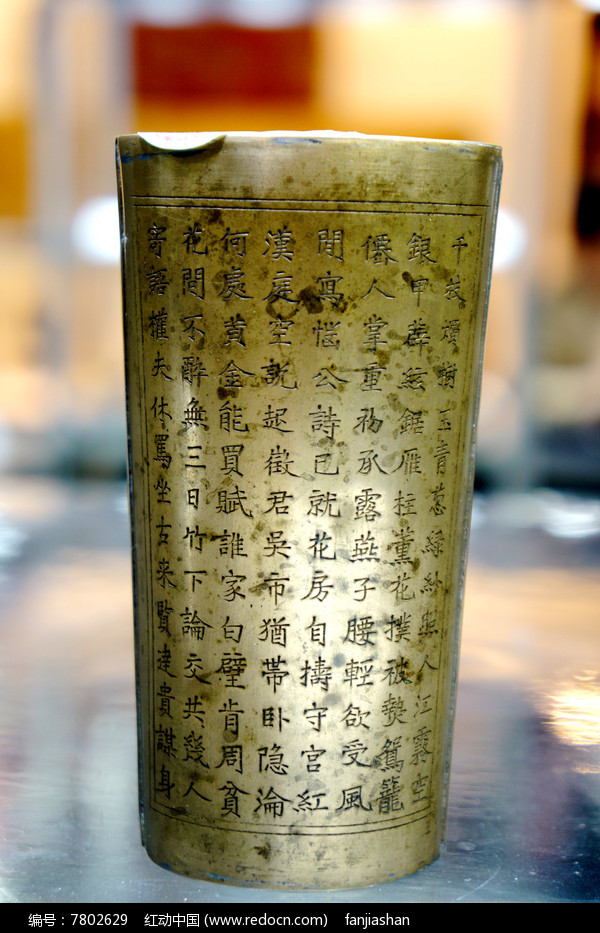 千枝煙樹玉青葱綠紗照人江霧空
銀甲薜絃鋸雁柱薰花撲被熱鴛籠
僊人掌重初承露燕子腰輕欲受風
閒寫惱公詩已就花房自擣守宮紅
漢庭空説起徵君吳市猶帯卧隐淪
何處黄金能買賦誰家白璧肯周貧
花間不醉無三日竹下論交共幾人
寄語權夫休罵坐古来賢達貴謀身
编号:7802629 红动中国 (www.redocn.com) fanjiashan